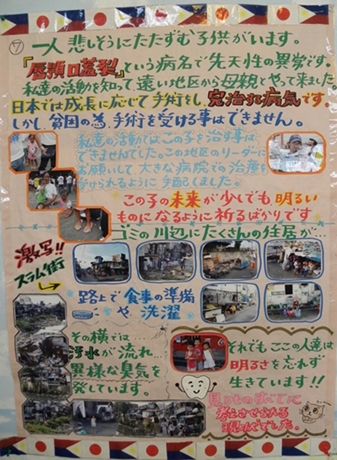 ⑦
一人悲しそうにたたずむ子供がいます。
『唇顎口蓋裂』という病名で先天性の異常です。
私達の活動を知って、遠い地区から母親とやって来ました。
日本では成長に応じて手術をし、完治する病気です。
しかし貧困の為、手術を受ける事はできません。
私達の活動ではこの子を治す事は
できませんでした。この地区のリーダーに
お願いして大きな病院での治療を
受けられるように手配しました。
この子の未来が少しでも明るい
ものになるように祈るばかりです
ゴミの川辺にたくさんの住居が…
激写!!
スラム街
路上で食事の準備
や洗濯
その横では
汚水が流れ
異様な臭気を
発しています。
それでもここの人達は
明るさを忘れず
生きています!!